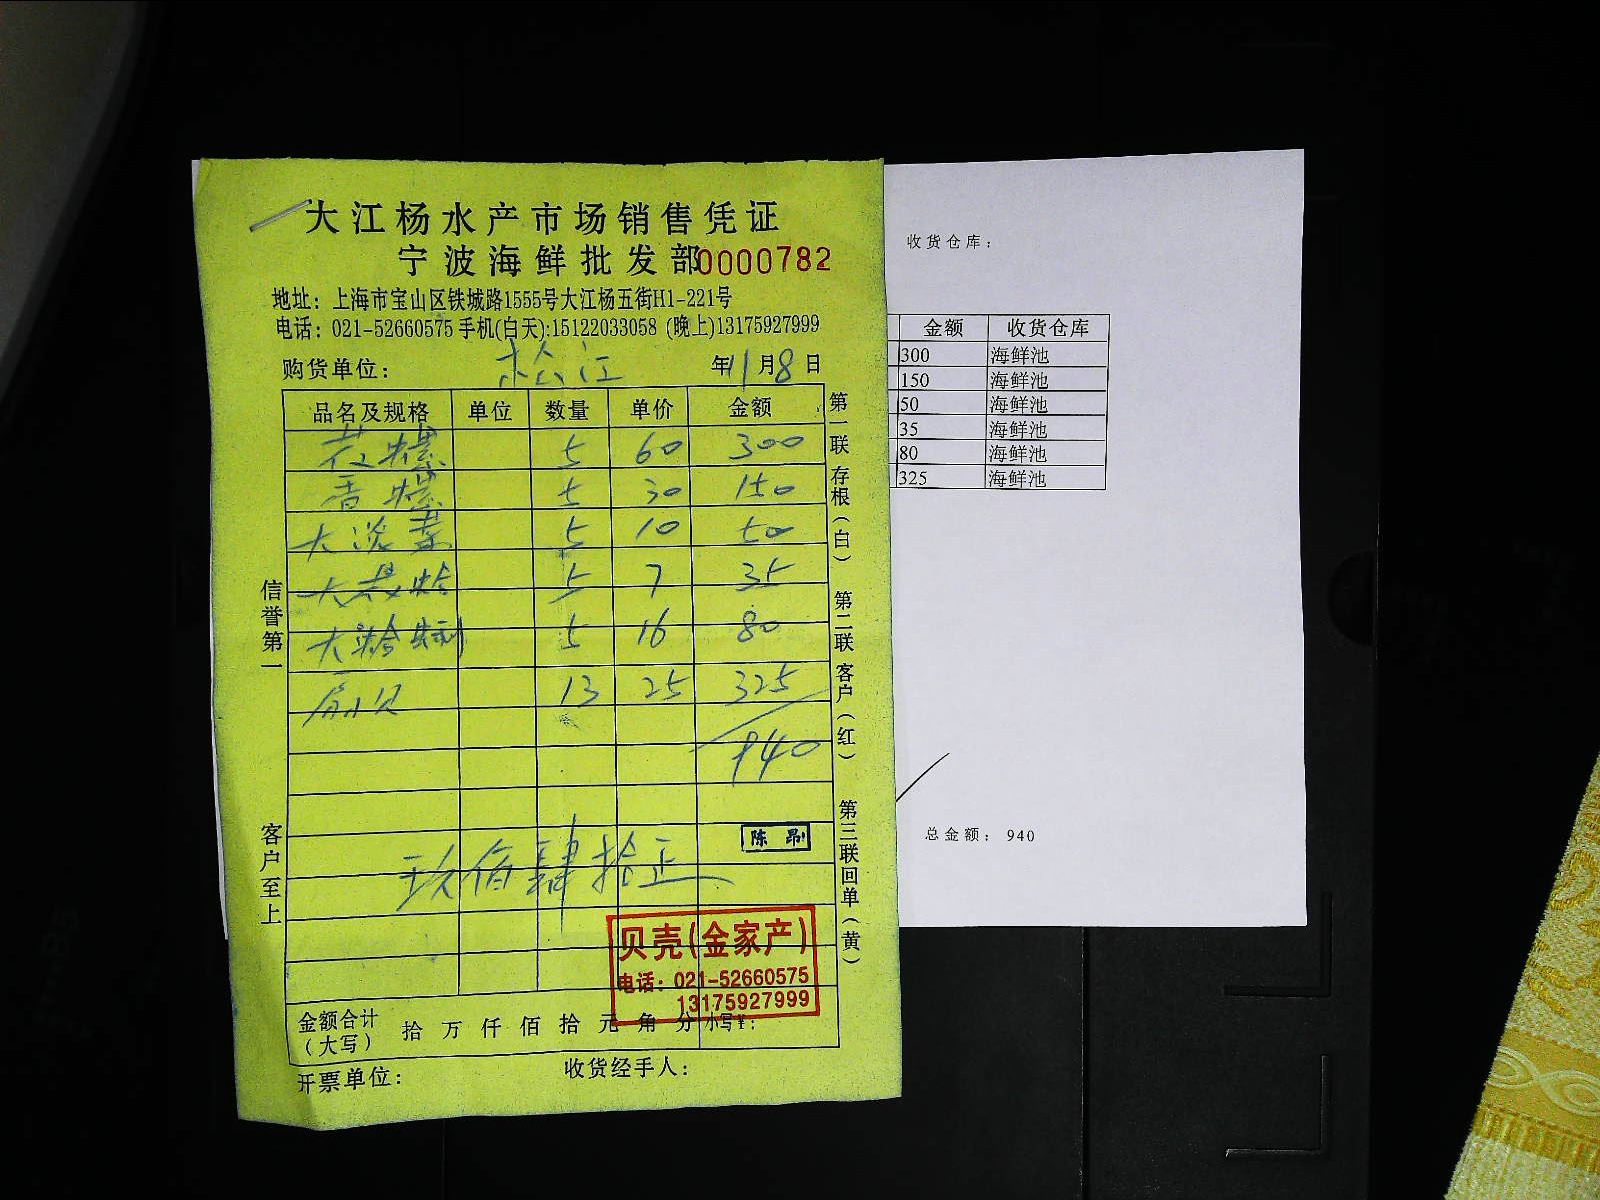 大江杨水产市场销售凭证
宁波海鲜批发部0000782
地址：上海市宝山区铁城路1555号大江杨五街H1-221号
电话：021-52660575 手机(白天):15122033058 (晚上)13175927999
购货单位： 松江 年11月8日
品名及规格 单位 数量 单价 金额
花螺 5 60 300
香螺 5 30 150
大淡菜 5 10 50
大花蛤 5 7 35
大 5 16 80
扇贝 13 25 325
940
玖佰肆拾正
陈昂
贝壳(金家产)
电话：021-52660575
13175927999
金额合计
（大写） 拾 万 仟 佰 拾 元 角 分 小写¥：
开票单位： 收货经手人：
信誉第一
客户至上
第一联 存根（白） 第二联 客户（红） 第三联 回单（黄）
收货仓库：
金额 收货仓库
300 海鲜池
150 海鲜池
50 海鲜池
35 海鲜池
80 海鲜池
325 海鲜池
总金额： 940